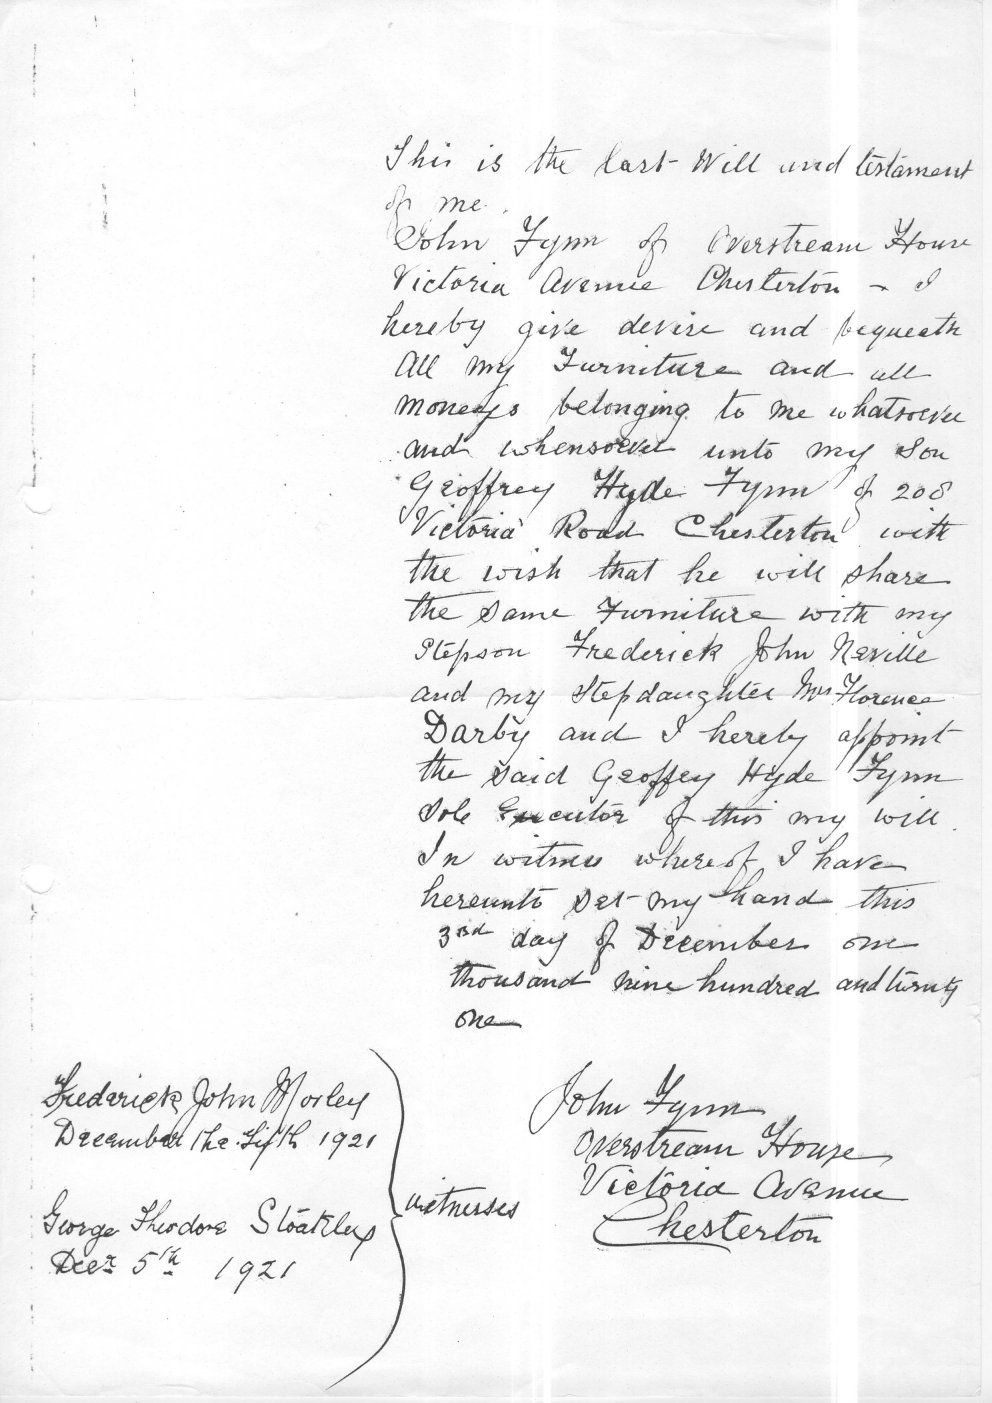 This is the last Will and testament
of me.
John Fynn of Overstream House
Victoria Avenue Chesterton - I
hereby give devise and bequeath
All my Furniture and all
moneys belonging to me whatsoever
and whensoever unto my Son
Geoffrey Hyde Fynn of 208
Victoria Road Chesterton with
the wish that he will share
the same Furniture with my
Stepson Frederick John Neville
and my Stepdaughter Mrs Florence
Darby and I hereby appoint
the said Geoffey Hyde Fynn
Sole Executor of this my will.
In witness whereof I have
hereunto set my hand this
3rd day of December one
thousand nine hundred and twenty
one
John Fynn
Overstream House
Victoria Avenue
Chesterton
Frederick John Morley
December the Fifth 1921
George Theodore Stoakley
Decr 5th 1921
Witnesses